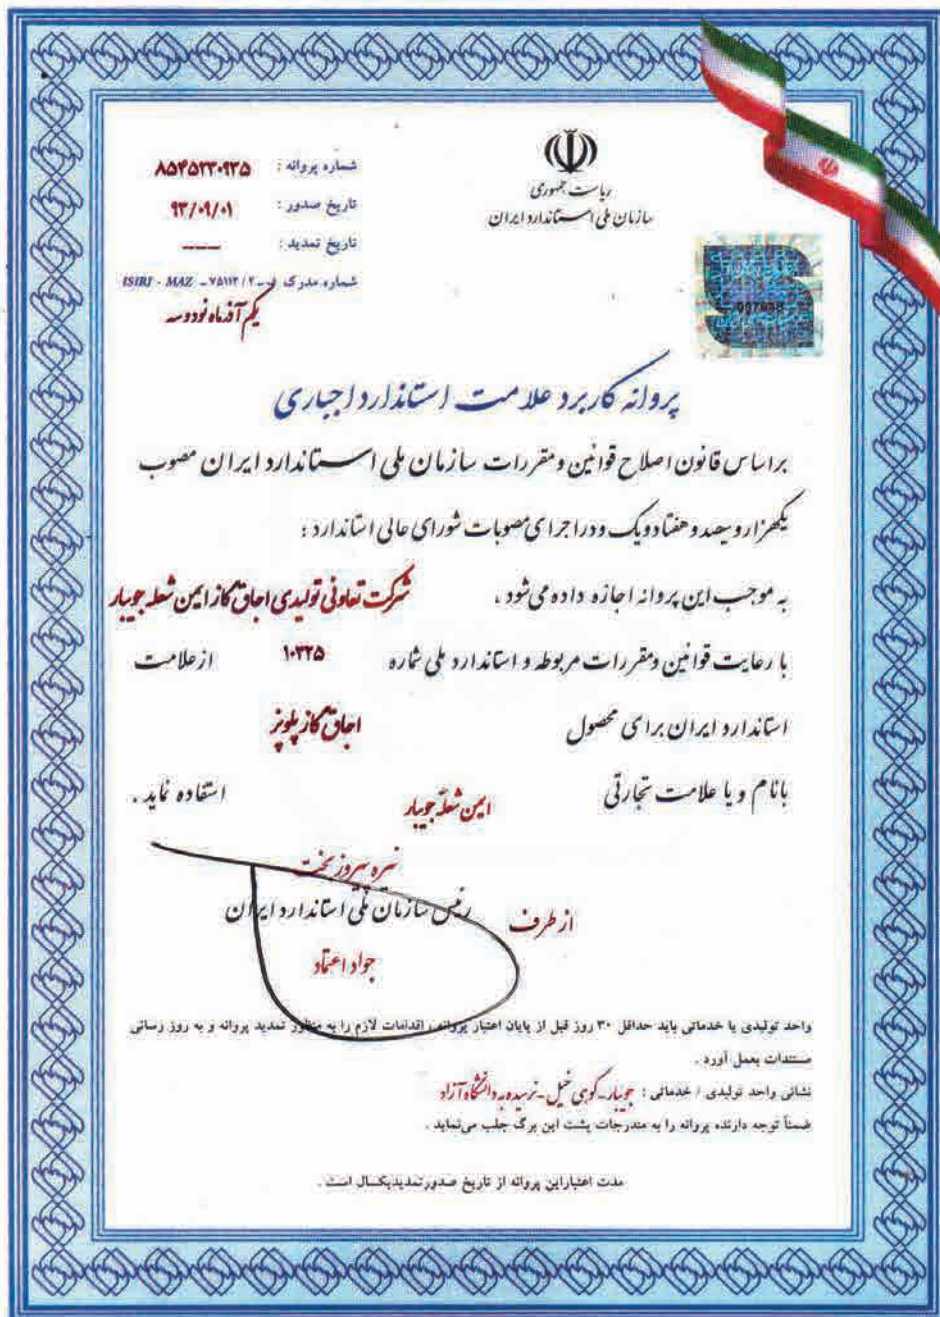 ریاست جمهوری
سازمان ملی استاندارد ایران
شماره پروانه : ۸۵۴۵۲۳۰۹۳۵
تاریخ صدور : ۹۳/۰۹/۰۱
تاریخ تمدید : ----
شماره مدرک ف-۲/۷۵۱۱۲ - ISIRI - MAZ
یکم آذرماه نودوسه
پروانه کاربرد علامت استاندارد اجباری
براساس قانون اصلاح قوانین و مقررات سازمان ملی استاندارد ایران مصوب
یکهزار و سیصد و هفتاد و یک و در اجرای مصوبات شورای عالی استاندارد ؛
به موجب این پروانه اجازه داده می شود ، شرکت تعاونی تولیدی اجاق گاز ایمن شعله جویبار
با رعایت قوانین و مقررات مربوطه و استاندارد ملی شماره ۱۰۳۲۵ از علامت
استاندارد ایران برای محصول اجاق گاز پلوپز
بانام و یا علامت تجارتی ایمن شعله جویبار استفاده نماید .
نیره پیروزبخت
رئیس سازمان ملی استاندارد ایران
از طرف
جواد اعتماد
واحد تولیدی یا خدماتی باید حداقل ۳۰ روز قبل از پایان اعتبار پروانه ، اقدامات لازم را به منظور تمدید پروانه و به روز رسانی
مستندات بعمل آورد .
نشانی واحد تولیدی / خدماتی : جویبار-کوهی خیل-نرسیده به دانشگاه آزاد
ضمناً توجه دارنده پروانه را به مندرجات پشت این برگ جلب می‌نماید .
مدت اعتباراین پروانه از تاریخ صدورتمدیدیکسال است .